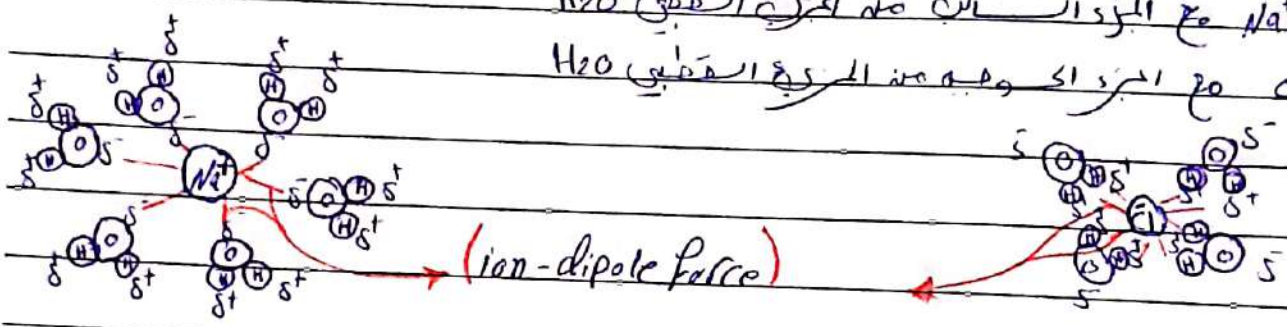 Na⁺ مع الجزء السالب من المركب القطبي H2O
مع الجزء الموجب من المركب القطبي H2O
δ⁺ H δ⁺ H O δ⁻
δ⁺ H O H δ⁺ δ⁻
δ⁺ H O H δ⁺ δ⁻
Na⁺
δ⁻ O H δ⁺ H δ⁺
δ⁻ O H δ⁺ H δ⁺
δ⁻ O H δ⁺ H δ⁺
(ion-dipole force)
δ⁻ O H H δ⁺
δ⁻ O H H δ⁺
Cl⁻
δ⁻ O H H δ⁺
δ⁻ O H H